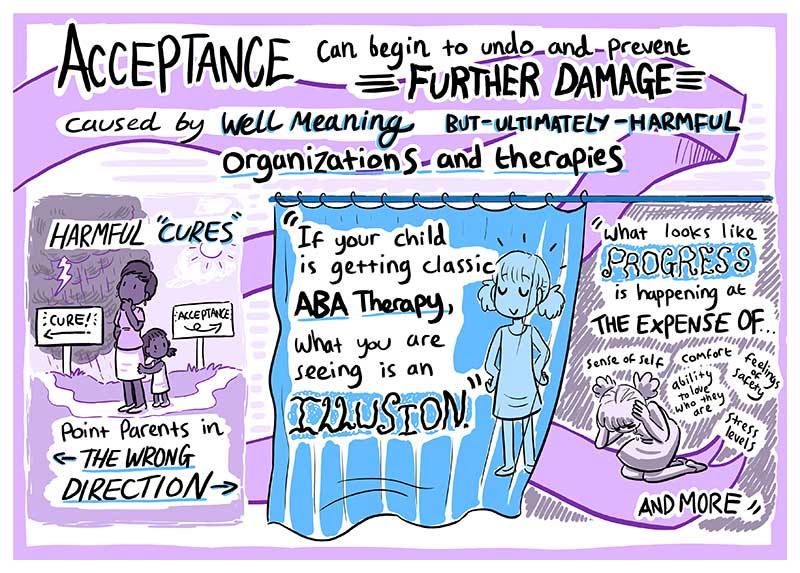 ACCEPTANCE can begin to undo and prevent
FURTHER DAMAGE
caused by Well Meaning BUT-ULTIMATELY-HARMFUL
organizations and therapies
HARMFUL "CURES"
CURE!
ACCEPTANCE
Point Parents in
THE WRONG
DIRECTION
"If your child
is getting classic
ABA Therapy,
what you are
seeing is an
ILLUSION."
"what looks like
PROGRESS
is happening at
THE EXPENSE OF...
sense of self
comfort
feelings
of
safety
ability
to love
who they
are
stress
levels
AND MORE"